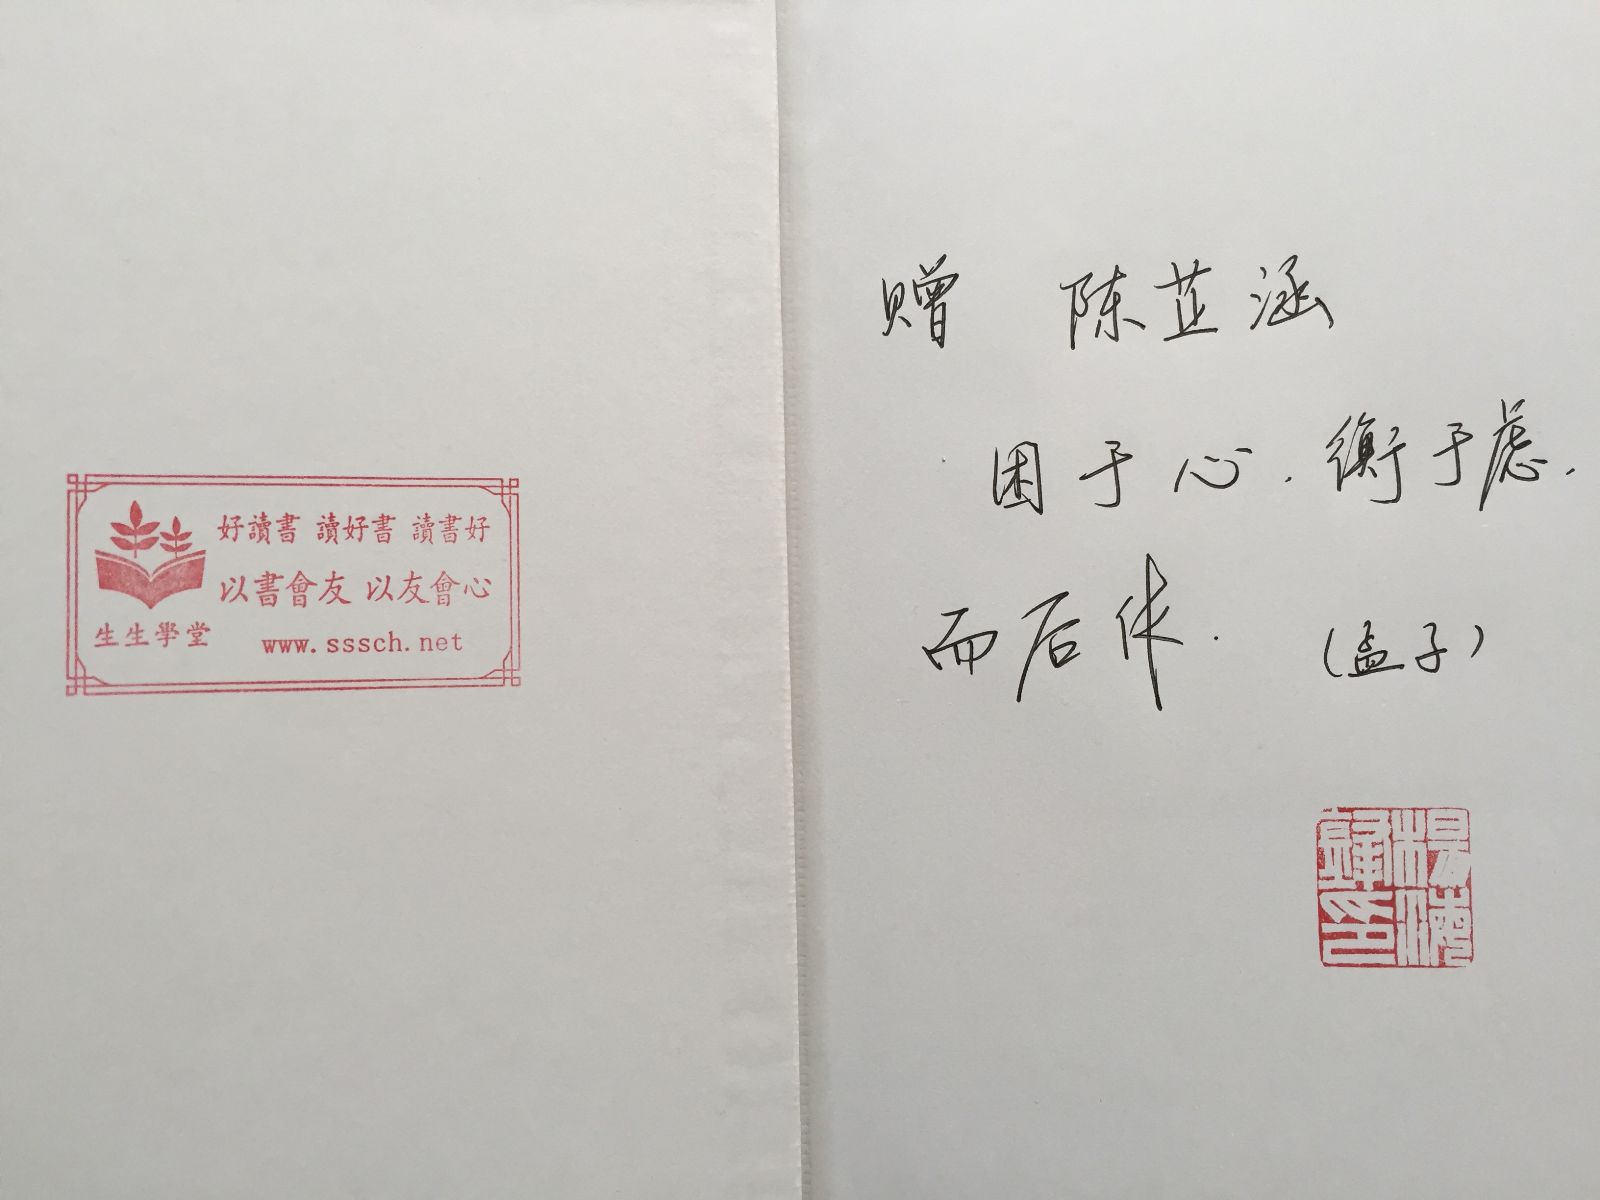 好讀書 讀好書 讀書好
以書會友 以友會心
生生學堂
www.sssch.net
赠 陈芷涵
困于心.衡于虑.
而后作.
(孟子)